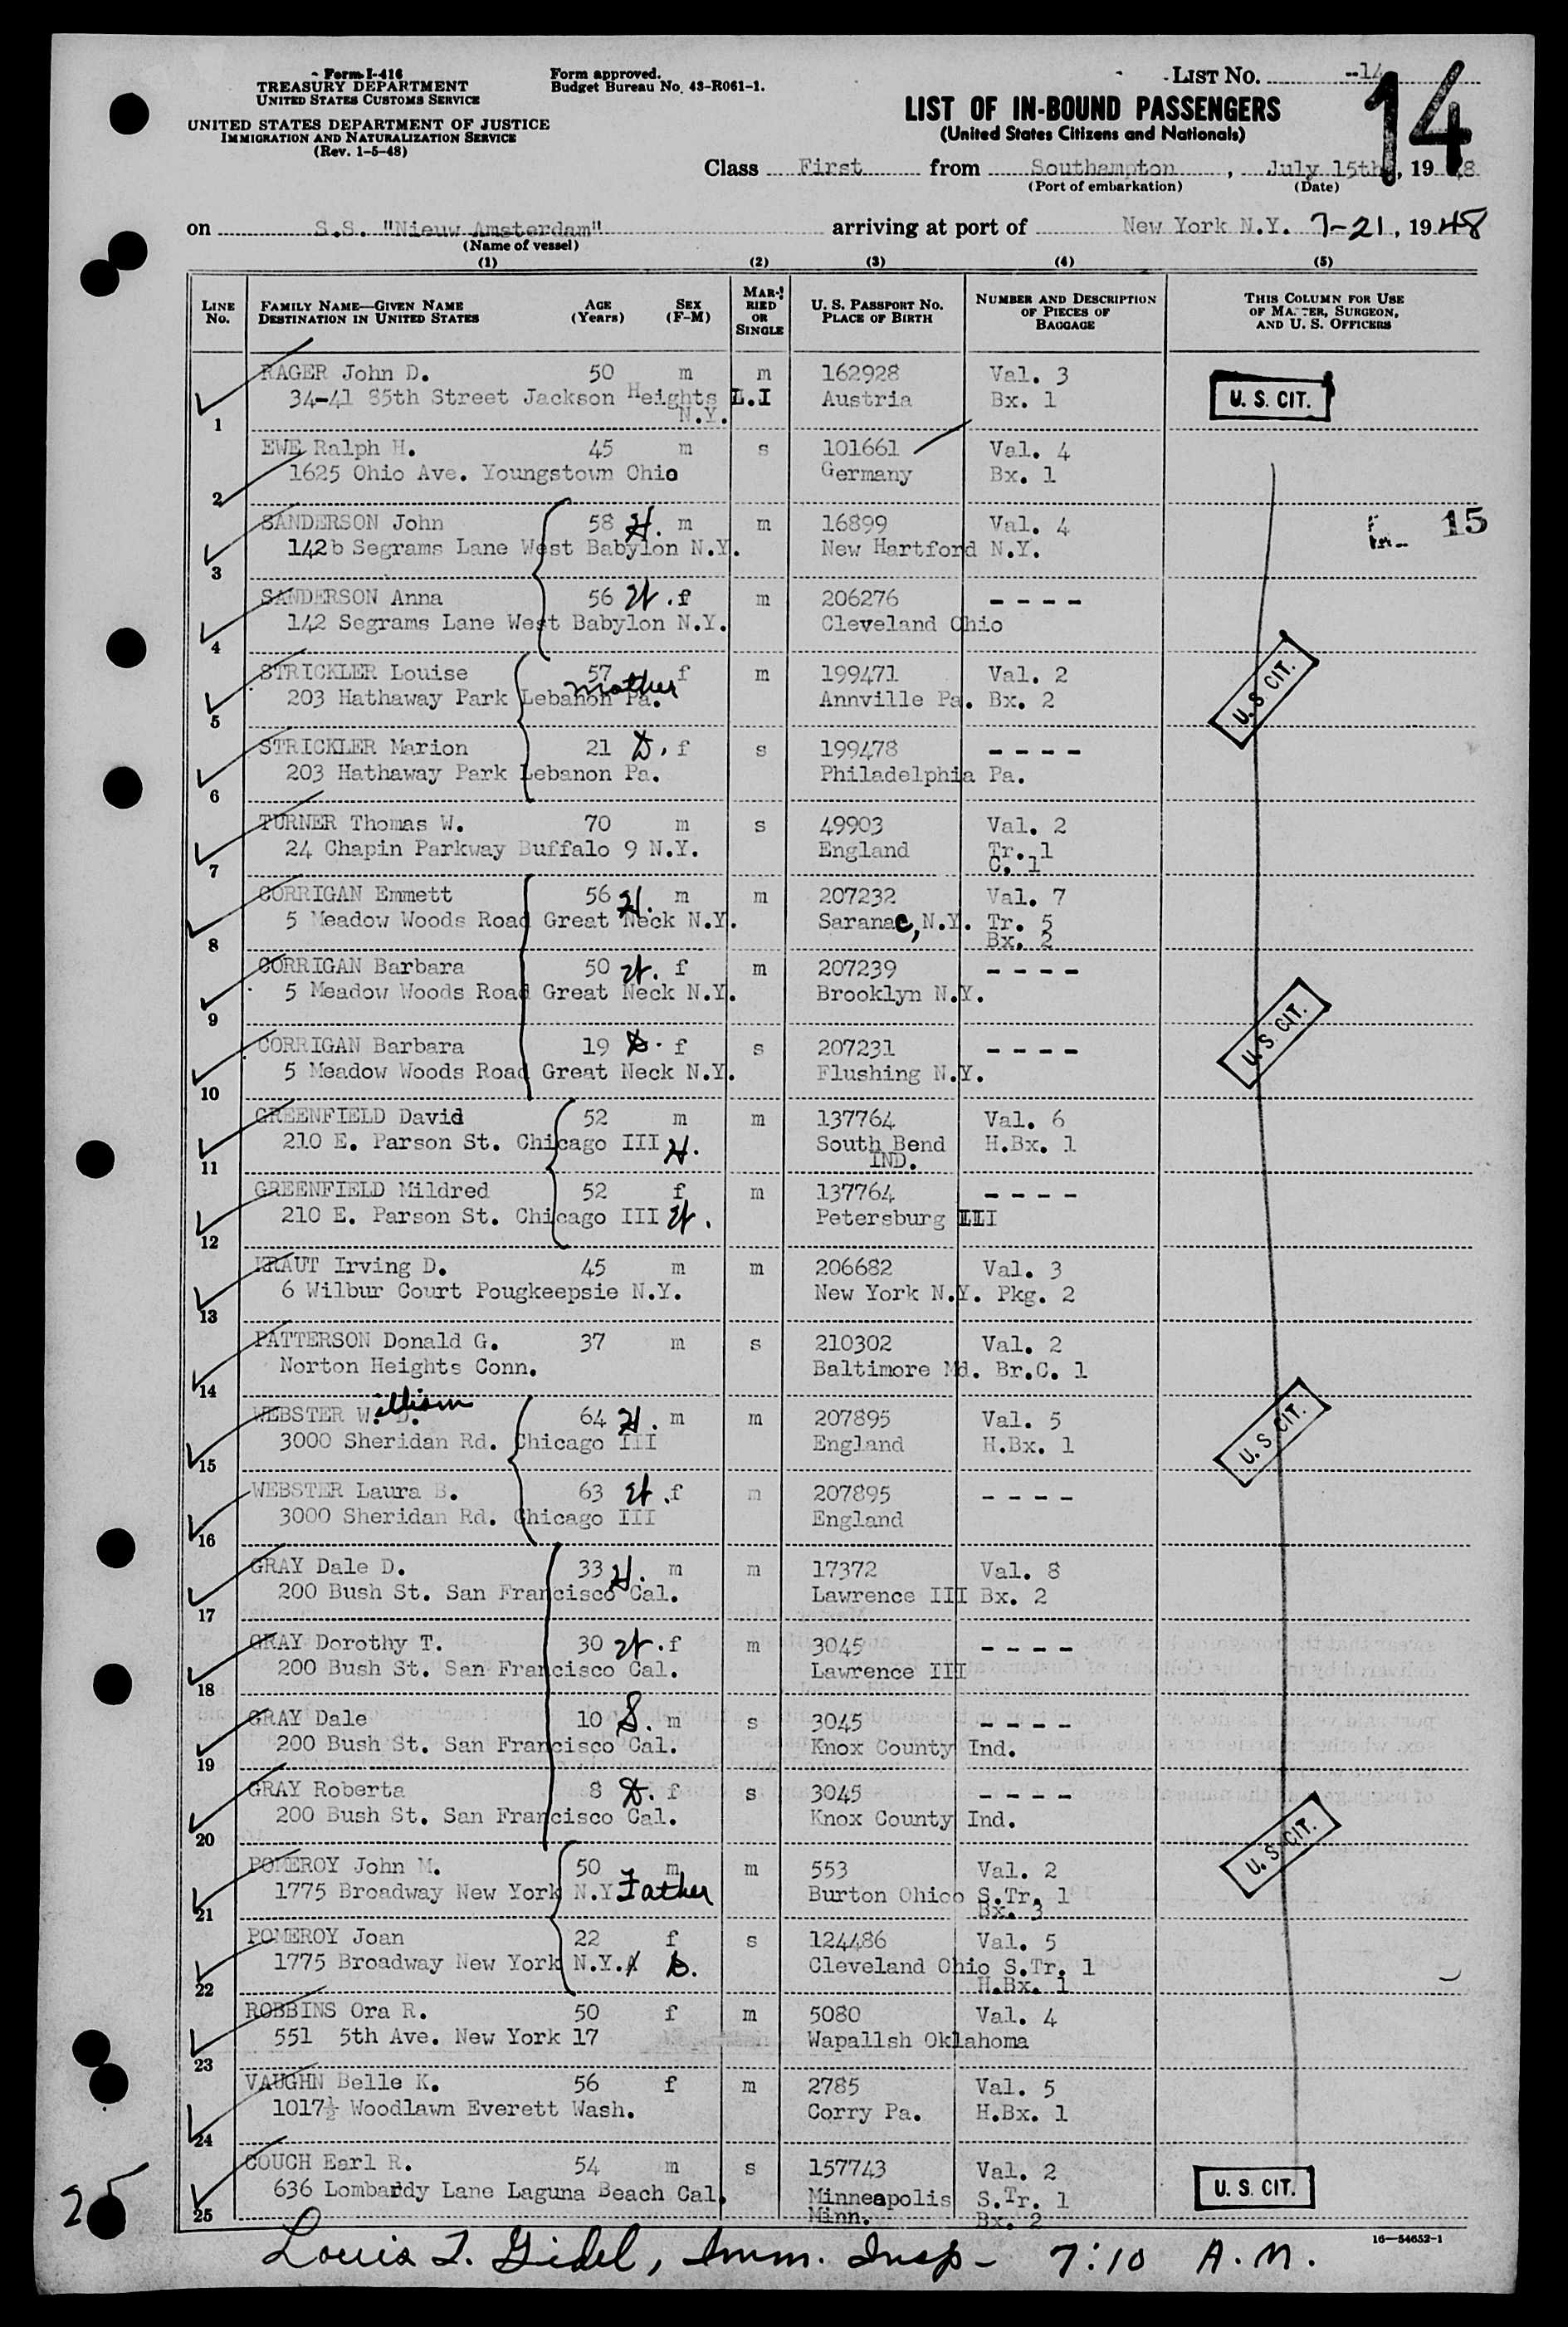 Form I-416
TREASURY DEPARTMENT
UNITED STATES CUSTOMS SERVICE
UNITED STATES DEPARTMENT OF JUSTICE
IMMIGRATION AND NATURALIZATION SERVICE
(Rev. 1-5-48)
Form approved.
Budget Bureau No. 43-R061-1.
LIST No. 14
14
LIST OF IN-BOUND PASSENGERS
(United States Citizens and Nationals)
Class First from Southampton, July 15th, 1948
(Port of embarkation) (Date)
on S.S. "Nieuw Amsterdam" arriving at port of New York N.Y. 7-21, 1948
(Name of vessel)
(1) (2) (3) (4) (5)
LINE No. FAMILY NAME—GIVEN NAME DESTINATION IN UNITED STATES AGE (Years) SEX (F-M) MARRIED OR SINGLE U. S. PASSPORT No. PLACE OF BIRTH NUMBER AND DESCRIPTION OF PIECES OF BAGGAGE THIS COLUMN FOR USE OF MASTER, SURGEON, AND U. S. OFFICERS
RAGER John D. 50 m m 162928 Val. 3
34-41 85th Street Jackson Heights L.I Austria Bx. 1 U. S. CIT.
1 N.Y.
EWE Ralph H. 45 m s 101661 Val. 4
1625 Ohio Ave. Youngstown Ohio Germany Bx. 1
2
SANDERSON John 58 H. m m 16899 Val. 4 15
142b Segrams Lane West Babylon N.Y. New Hartford N.Y.
3
SANDERSON Anna 56 W. f m 206276 ----
142 Segrams Lane West Babylon N.Y. Cleveland Ohio
4
STRICKLER Louise 57 f m 199471 Val. 2
mother
203 Hathaway Park Lebanon Pa. Annville Pa. Bx. 2 U. S. CIT.
5
STRICKLER Marion 21 D. f s 199478 ----
203 Hathaway Park Lebanon Pa. Philadelphia Pa.
6
TURNER Thomas W. 70 m s 49903 Val. 2
24 Chapin Parkway Buffalo 9 N.Y. England Tr. 1
7 C. 1
CORRIGAN Emmett 56 H. m m 207232 Val. 7
5 Meadow Woods Road Great Neck N.Y. Saranac, N.Y. Tr. 5
8 Bx. 2
CORRIGAN Barbara 50 W. f m 207239 ----
5 Meadow Woods Road Great Neck N.Y. Brooklyn N.Y.
9 U. S. CIT.
CORRIGAN Barbara 19 D. f s 207231 ----
5 Meadow Woods Road Great Neck N.Y. Flushing N.Y.
10
GREENFIELD David 52 m m 137764 Val. 6
210 E. Parson St. Chicago III H. South Bend H.Bx. 1
11 IND.
GREENFIELD Mildred 52 f m 137764 ----
210 E. Parson St. Chicago III W. Petersburg III
12
KRAUT Irving D. 45 m m 206682 Val. 3
6 Wilbur Court Pougkeepsie N.Y. New York N.Y. Pkg. 2
13
PATTERSON Donald G. 37 m s 210302 Val. 2
Norton Heights Conn. Baltimore Md. Br.C. 1
14
WEBSTER William D. 64 H. m m 207895 Val. 5
3000 Sheridan Rd. Chicago III England H.Bx. 1 U. S. CIT.
15
WEBSTER Laura B. 63 W. f m 207895 ----
3000 Sheridan Rd. Chicago III England
16
GRAY Dale D. 33 H. m m 17372 Val. 8
200 Bush St. San Francisco Cal. Lawrence III Bx. 2
17
GRAY Dorothy T. 30 W. f m 3045 ----
200 Bush St. San Francisco Cal. Lawrence III
18
GRAY Dale 10 S. m s 3045 ----
200 Bush St. San Francisco Cal. Knox County Ind.
19
GRAY Roberta 8 D. f s 3045 ----
200 Bush St. San Francisco Cal. Knox County Ind.
20 U. S. CIT.
POMEROY John M. 50 m m 553 Val. 2
1775 Broadway New York N.Y. Father Burton Ohico S.Tr. 1
21 Bx. 3
POMEROY Joan 22 f s 124486 Val. 5
1775 Broadway New York N.Y. D. Cleveland Ohio S.Tr. 1
22 H.Bx. 1
ROBBINS Ora R. 50 f m 5080 Val. 4
551 5th Ave. New York 17 Wapallsh Oklahoma
23
VAUGHN Belle K. 56 f m 2785 Val. 5
1017½ Woodlawn Everett Wash. Corry Pa. H.Bx. 1
24
COUCH Earl R. 54 m s 157743 Val. 2
636 Lombardy Lane Laguna Beach Cal. Minneapolis S.Tr. 1 U. S. CIT.
25 Minn. Bx. 2
25
16—54652-1
Louis T. Gidel, Imm. Insp- 7:10 A.M.